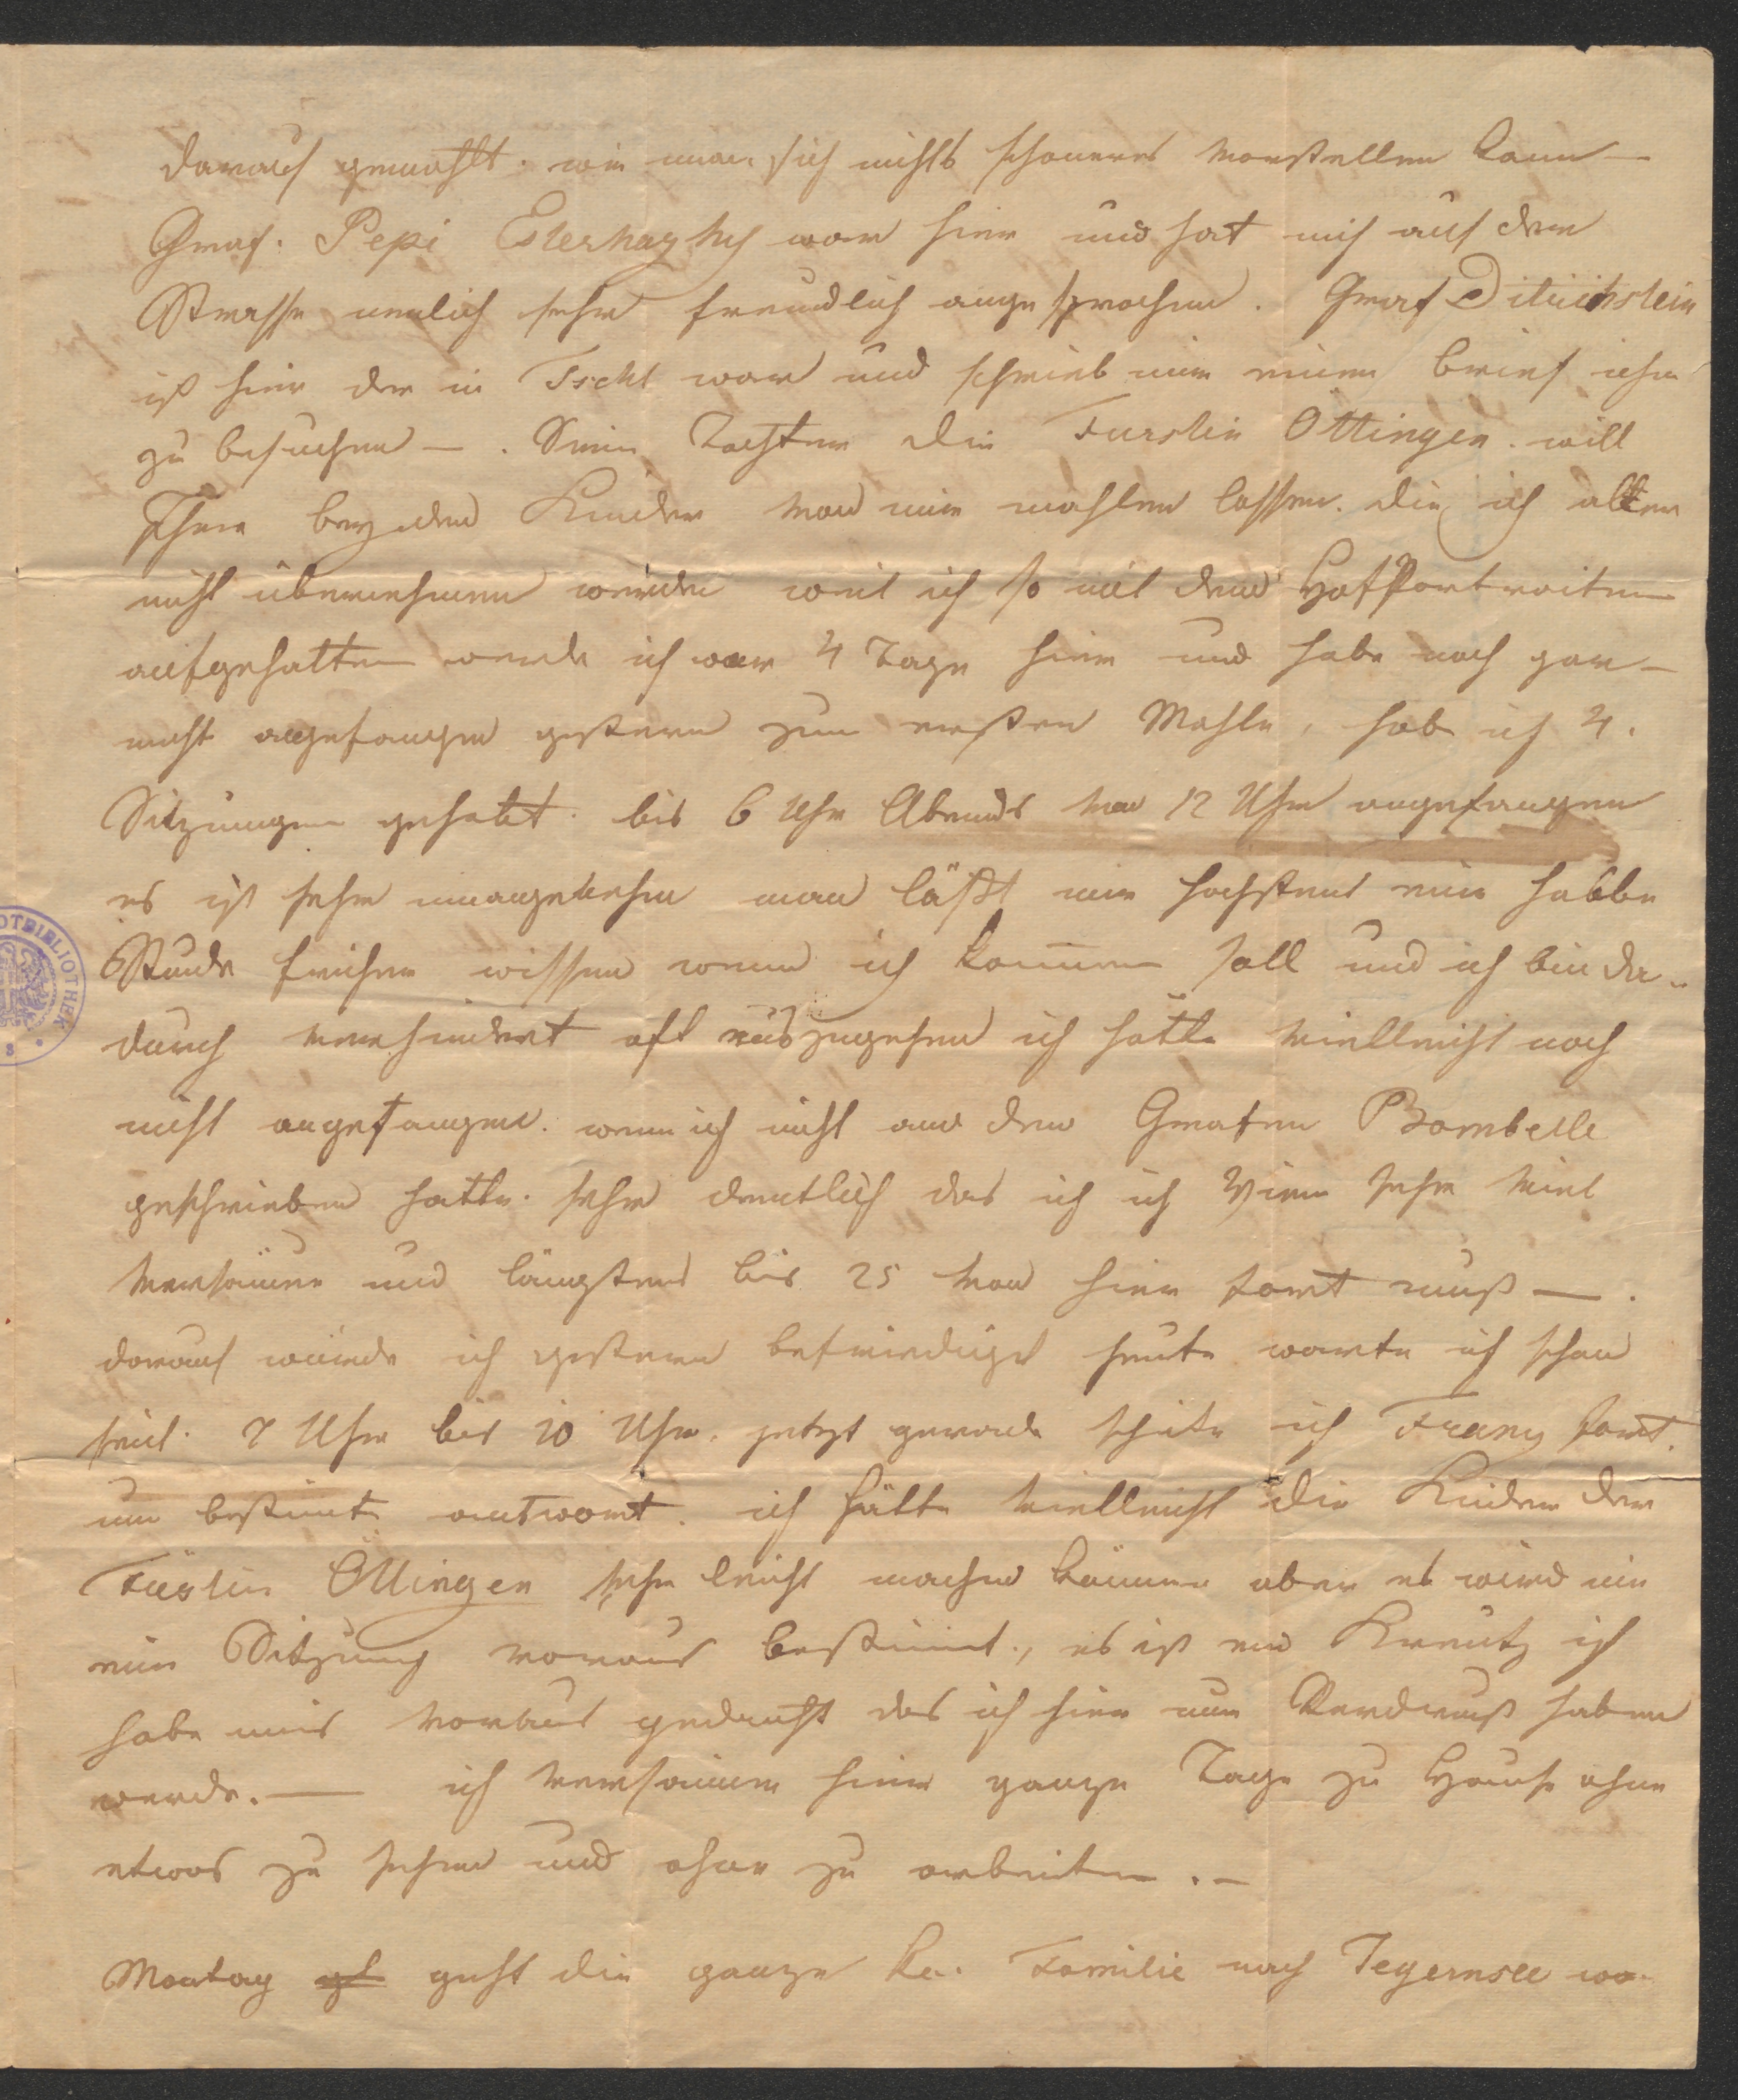 darauf gemahlt. wie man sich nichts schoneres vorstellen kann —
Graf. Pepi Esterhazhy war hier und hat mich auf der
Strasse neulich sehr freundlich angesprochen. Graf Ditrichstein
ist hier der in Ischl war und schrieb mir einen brief ihn
zu besuchen —. Seine Tochter die Furstin Ottingen. will
Ihre beyden Kinder von mir mahlen lassen. die ich aber
nicht übernehmen werde weil ich so mit den HofPortraiten
aufgehalten werde ich war 4 Tage hier und habe noch gar —
nicht angefangen gestern zum ersten Mahle, hab ich 4.
Sitzungen gehabt. bis 6 Uhr Abends von 12 Uhr angefangen
es ist sehr unangenehm man läßt mir hochstens eine halbe
Stunde früher wissen wenn ich kommen soll und ich bin da-
durch verhindert oft auszugehen ich hätte vielleicht noch
nicht angefangen. wenn ich nicht an den Grafen Bombelle
geschrieben hatte. sehr deutlich das ich in Wien sehr viel
versäume und längstens bis 25 von hier fort muß —.
darauf wurde ich gestern befriedigt heute warte ich schon
seit. 7 Uhr bis 10 Uhr. jetzt gerade schike ich Franz fort.
um bestimte antwort. ich hätte vielleicht die Kinder der
Füstin Öttingen sehr leicht machen können aber es wird nie
eine Sitzung voraus bestimt., es ist ein Kreutz ich
habe mirs voraus gedacht das ich hier nur Verdruß haben
werde. — ich versäume hier ganze Tage zu Hause ohne
etwas zu sehen und ohne zu arbeiten. —
Montag geht die ganze Familie nach Tegernsee wo
OTBIBLIOTHEK